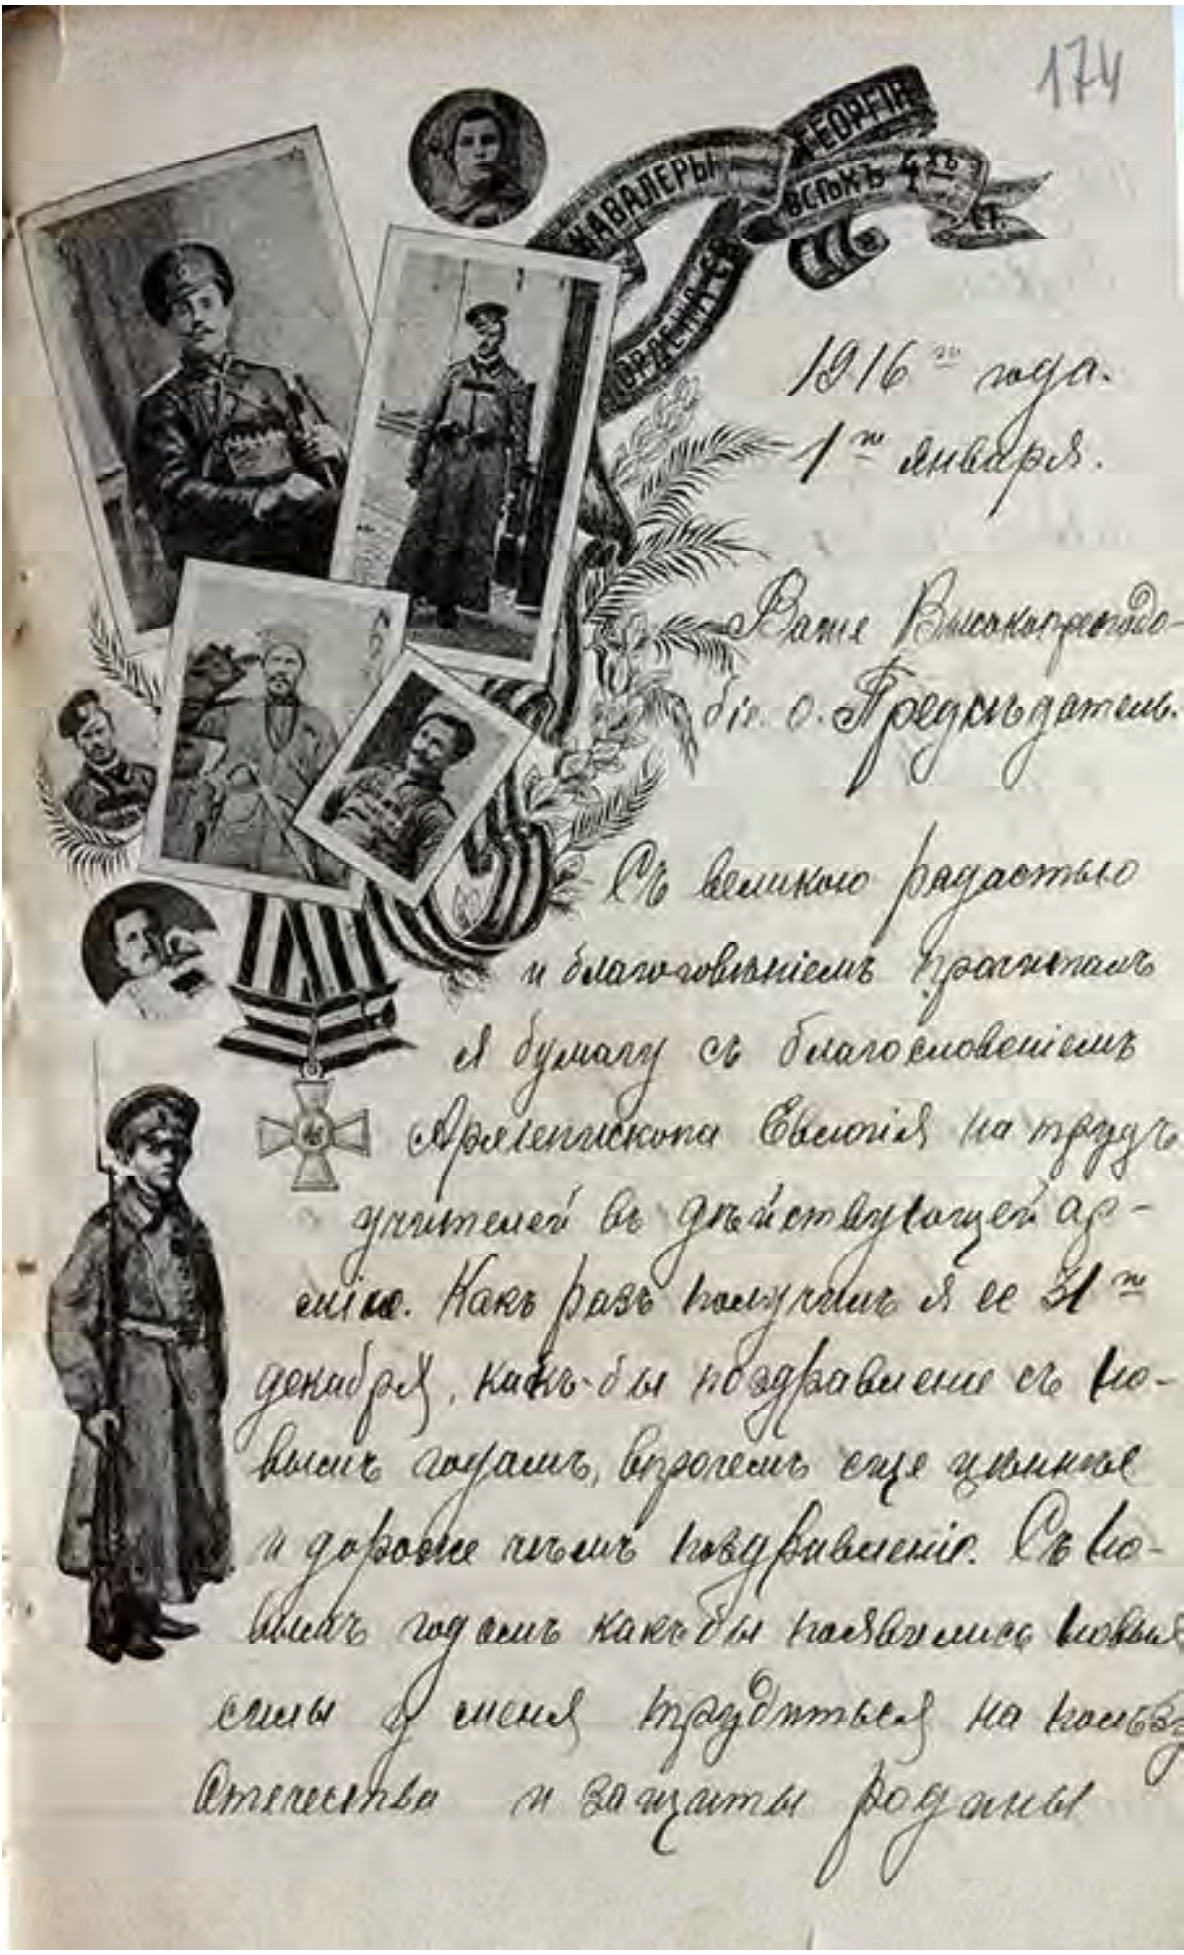 174
КАВАЛЕРЫ
ОРДЕНА СВ.
ГЕОРГІЯ
ВСѢХЪ 4ХЪ
СТ.
1916го года.
1го января.
Ваше Высокопреподо-
біе о. Предсѣдатель.
Съ великою радастью
и благоговѣніемъ прочиталъ
я бумагу съ благословеніемъ
Архіепископа Евлогія на трудъ
учителей въ дѣйствующей ар-
міи. Какъ разъ получилъ я ее 31го
декабря, какъ-бы поздравление съ но-
вымъ годамъ, впрочемъ еще цѣннѣе
и дороже чѣмъ поздравленіе. Съ но-
вымъ годомъ какъ бы появились новыя
силы у меня трудиться на пользу
Отечества и защиты родины